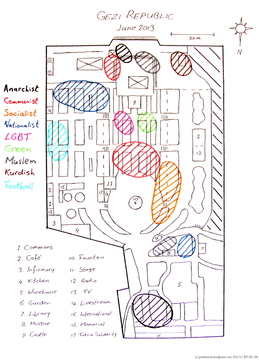 GEZI REPUBLIC
June 2013
20 m
N
Anarchist
Communist
Socialist
Nationalist
LGBT
Green
Muslem
Kurdish
Football
1 Commons
2 Café
3 Infirmary
4 Kitchen
5 Warehouse
6 Garden
7 Library
8 Mosque
9 Castle
10 Fountain
11 Stage
12 Radio
13 TV
14 Livestream
15 International
16 Memorial